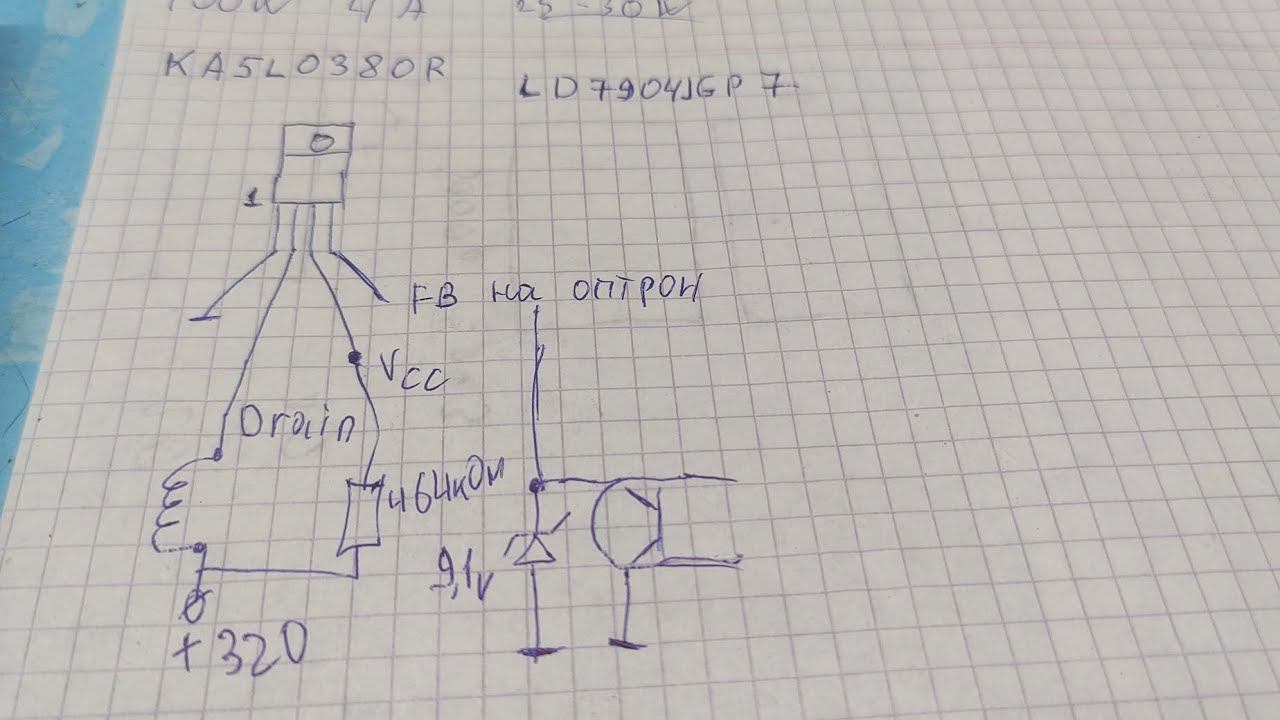 4 A
KA5L0380R
LD7904JGP 7.
0
1
FB на оптрон
Vcc
Drain
464кОм
9,1v
+320